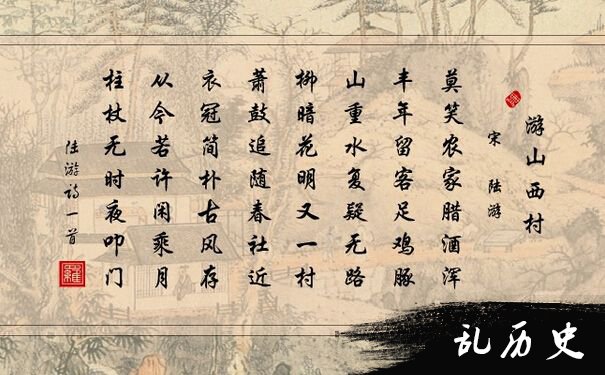 游山西村
宋 陆游
莫笑农家腊酒浑
丰年留客足鸡豚
山重水复疑无路
柳暗花明又一村
萧鼓追随春社近
衣冠简朴古风存
从今若许闲乘月
柱杖无时夜叩门
陆游诗一首
羅
乱历史